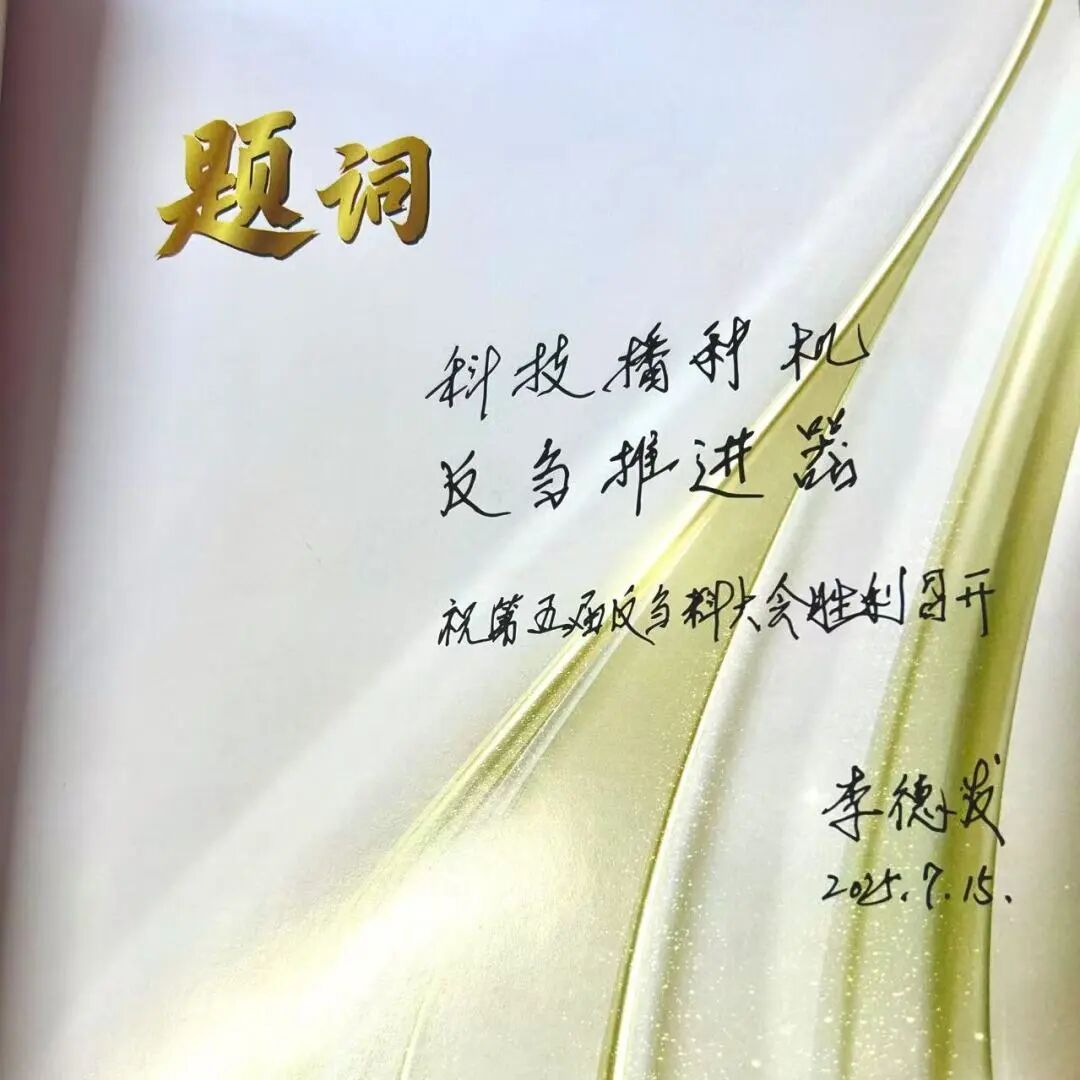 题词
科技播种机
反刍推进器
祝第五届反刍料大会胜利召开
李德发
2025.7.15.